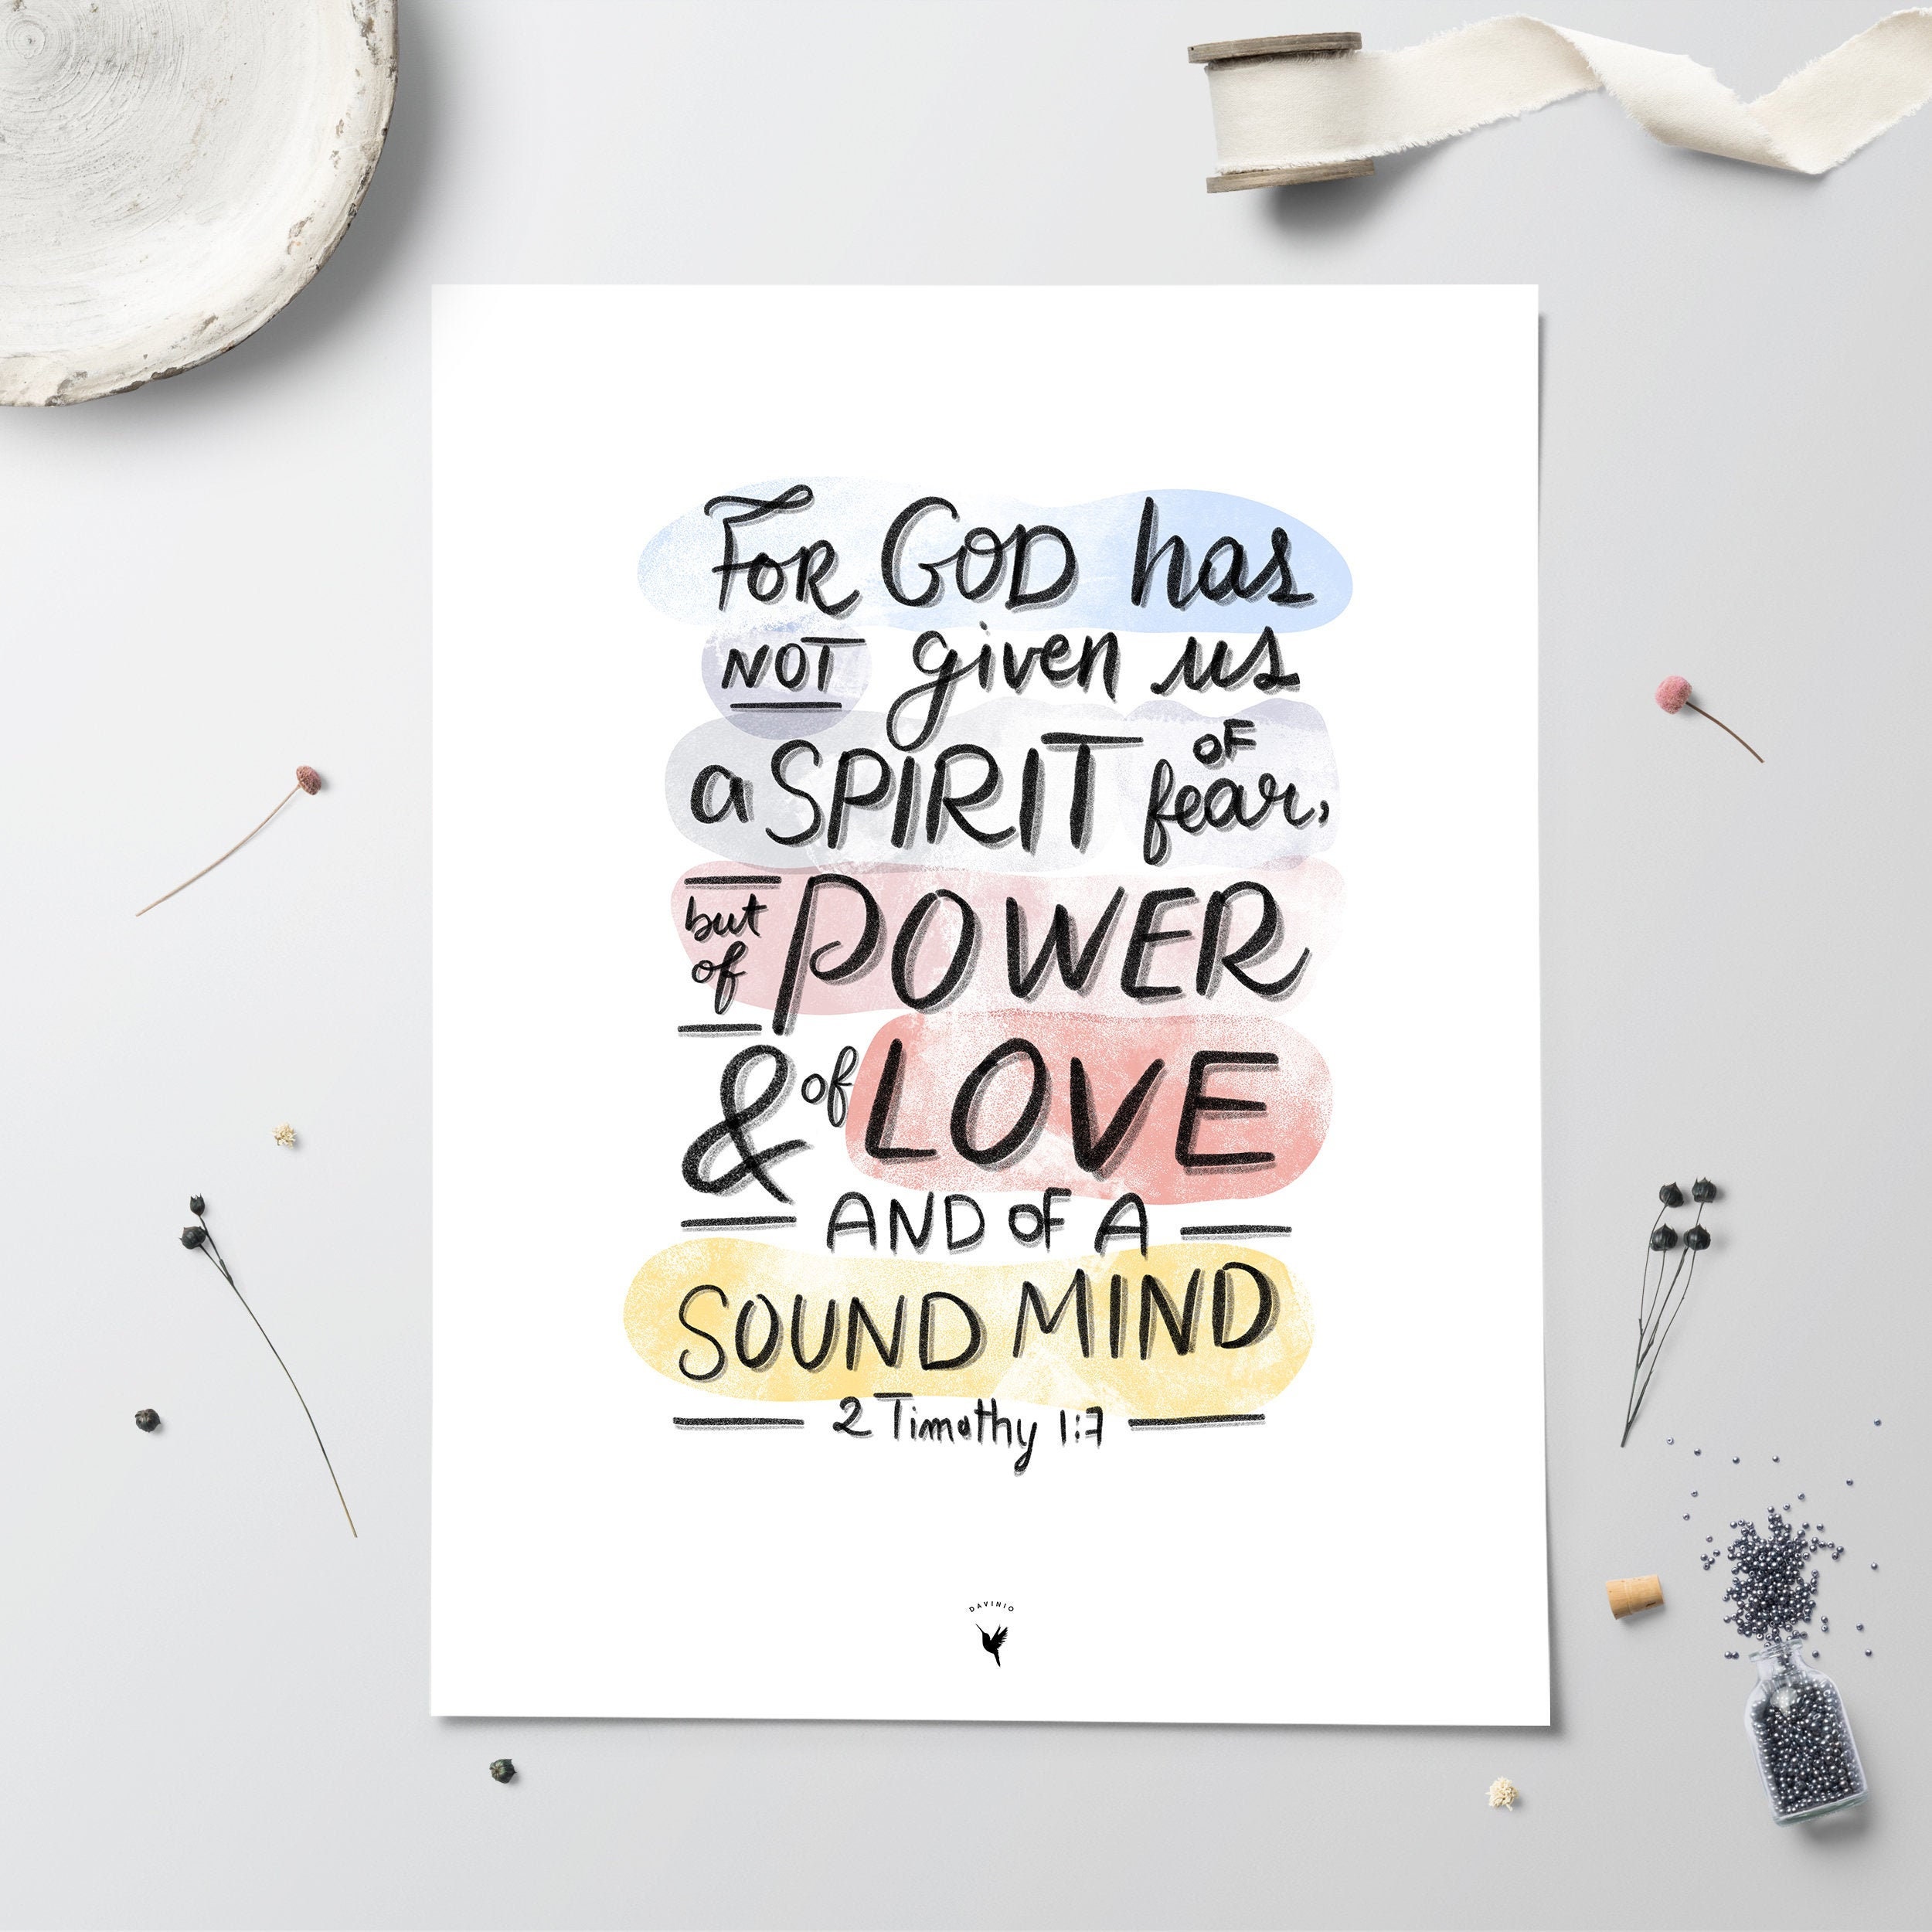 FOR GOD has
NOT given us
a SPIRIT OF fear,
but of POWER
& of LOVE
AND OF A
SOUND MIND
2 Timothy 1:7
DAVINIO